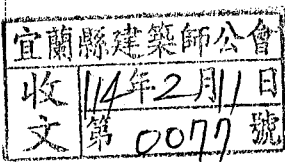 宜蘭縣建築師公會
收文
114年2月11日
第0077號